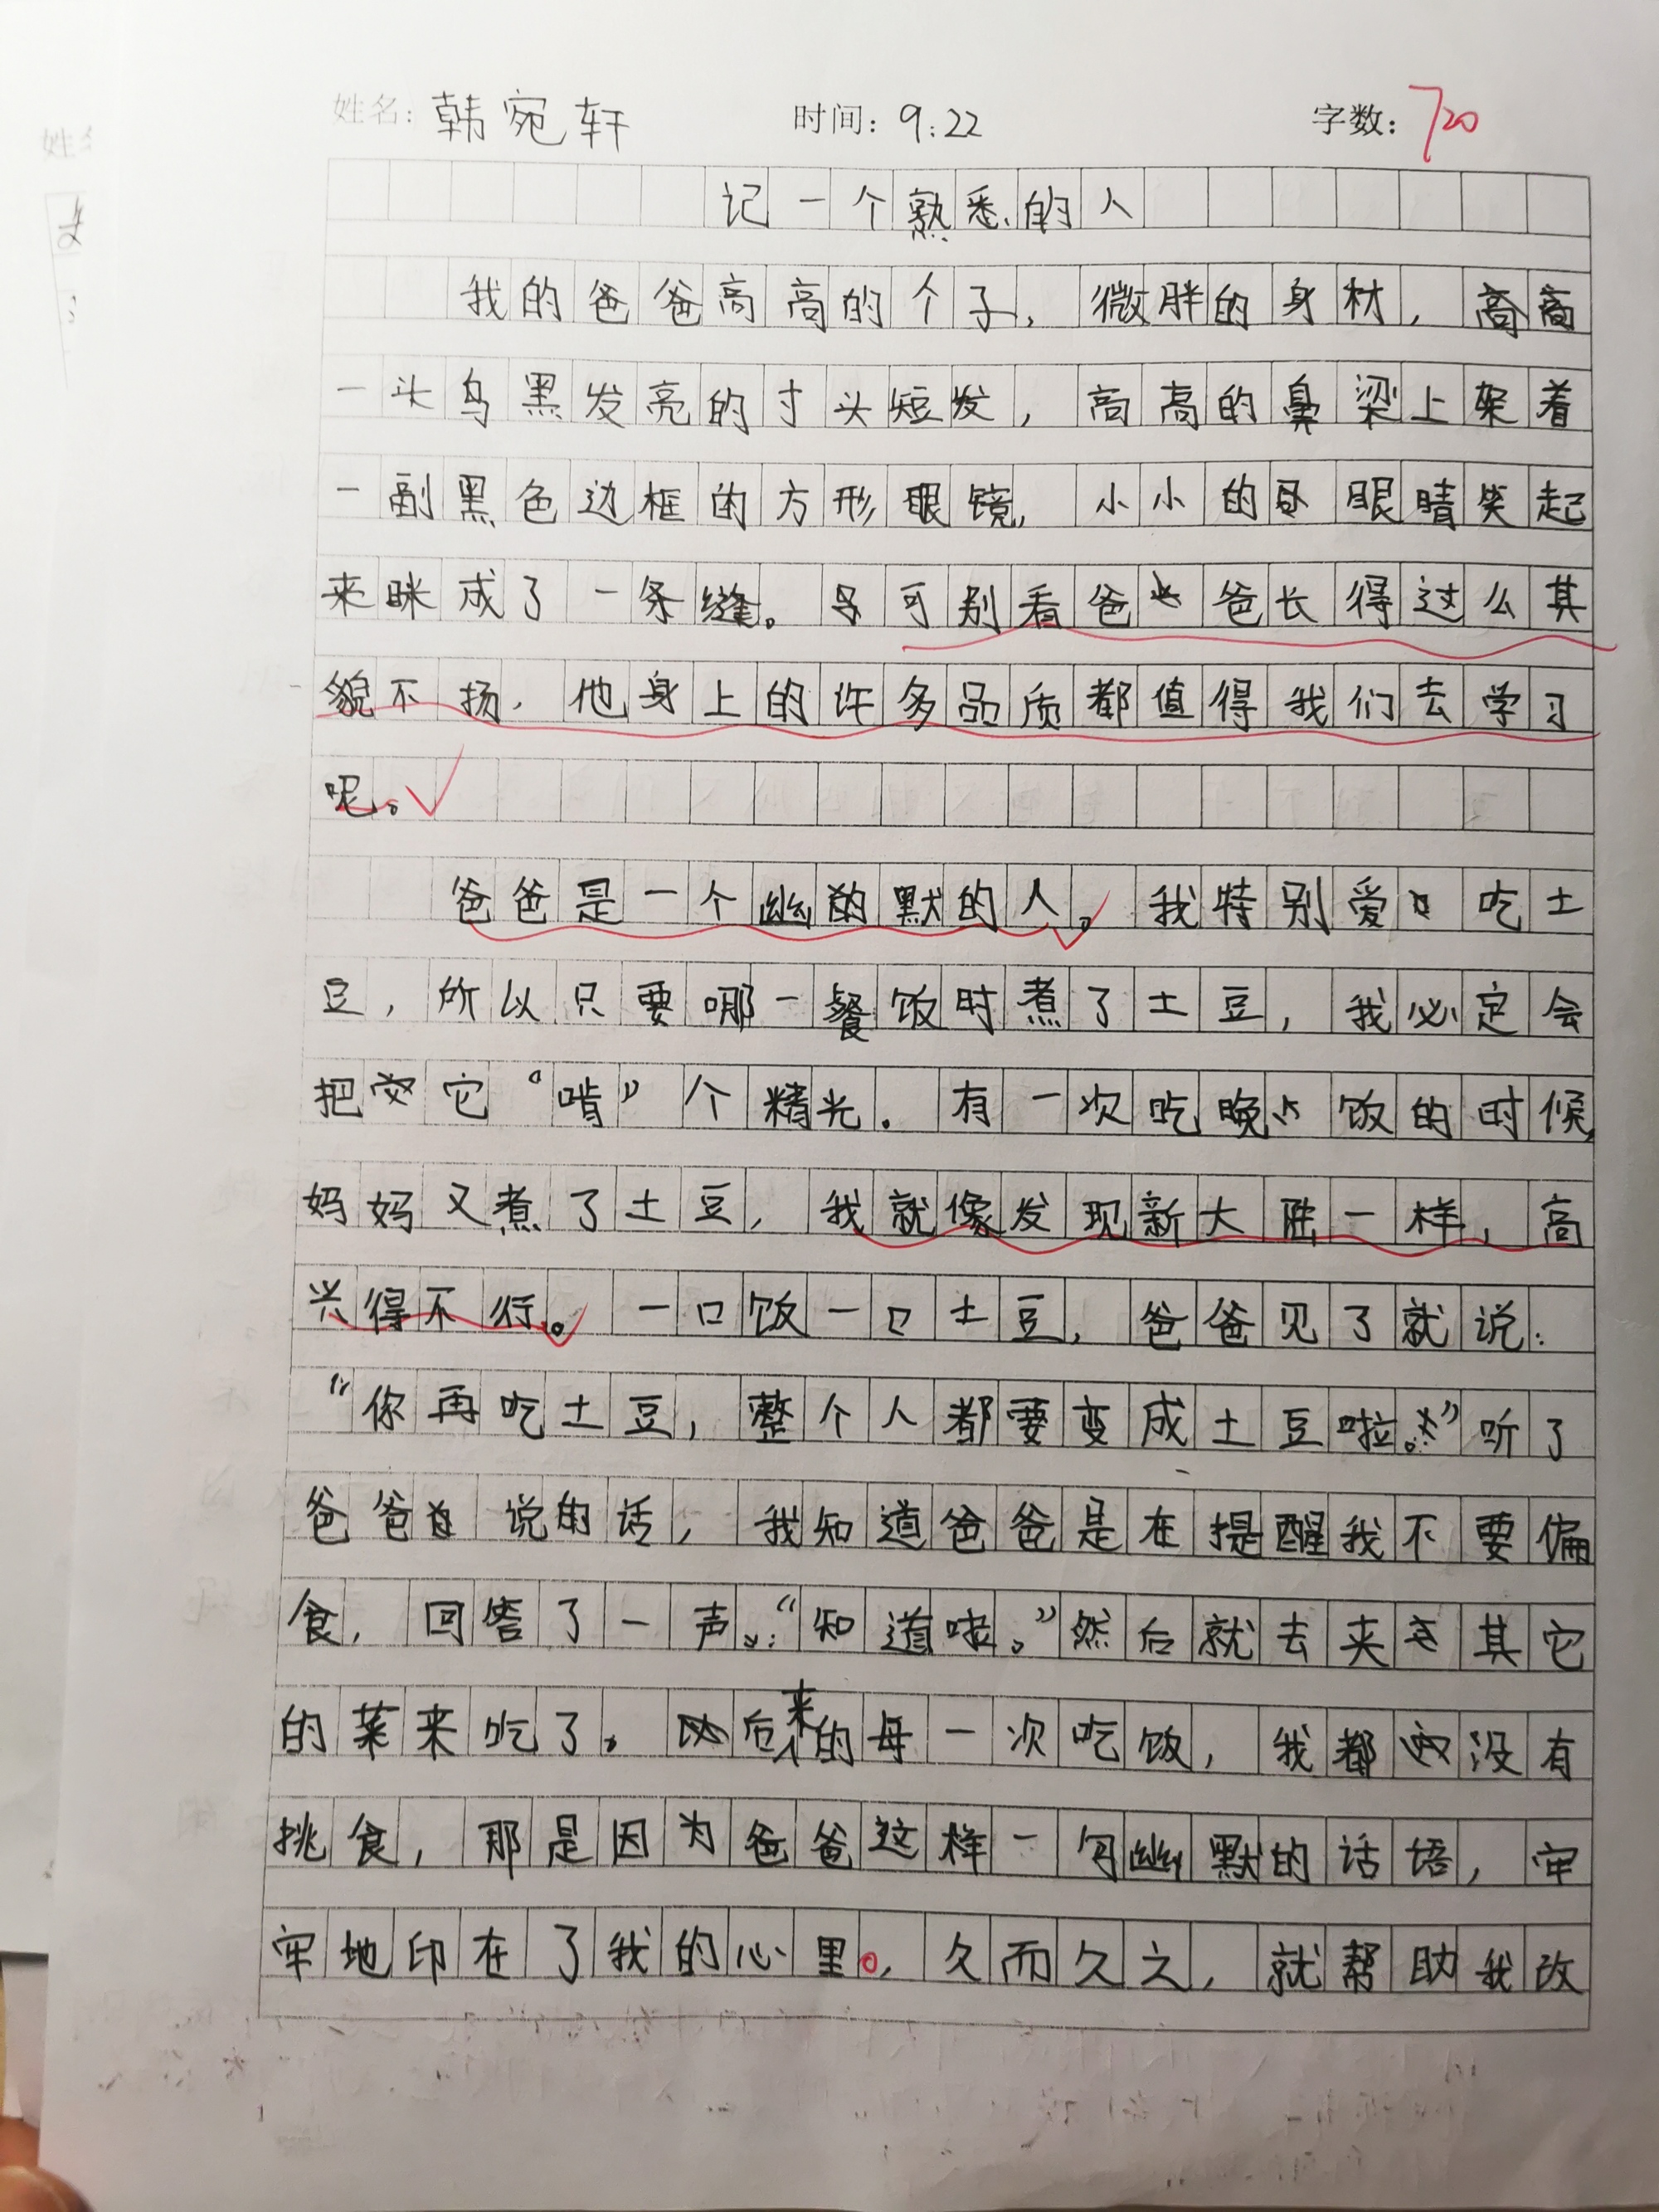 姓名：韩宛轩 时间：9:22 字数：720
记一个熟悉的人
我的爸爸高高的个子，微胖的身材，
一头乌黑发亮的寸头短发，高高的鼻梁上架着
一副黑色边框的方形眼镜，小小的眼睛笑起
来眯成了一条缝。可别看爸爸长得这么其
貌不扬，他身上的许多品质都值得我们去学习
呢。
爸爸是一个幽默的人。我特别爱吃土
豆，所以只要哪一餐饭时煮了土豆，我必定会
把它“啃”个精光。有一次吃晚饭的时候，
妈妈又煮了土豆，我就像发现新大陆一样，高
兴得不行。一口饭一口土豆，爸爸见了就说：
“你再吃土豆，整个人都要变成土豆啦。”听了
爸爸说的话，我知道爸爸是在提醒我不要偏
食，回答了一声：“知道啦。”然后就去夹其它
的菜来吃了。后来的每一次吃饭，我都没有
挑食，那是因为爸爸这样一句幽默的话语，牢
牢地印在了我的心里。久而久之，就帮助我改